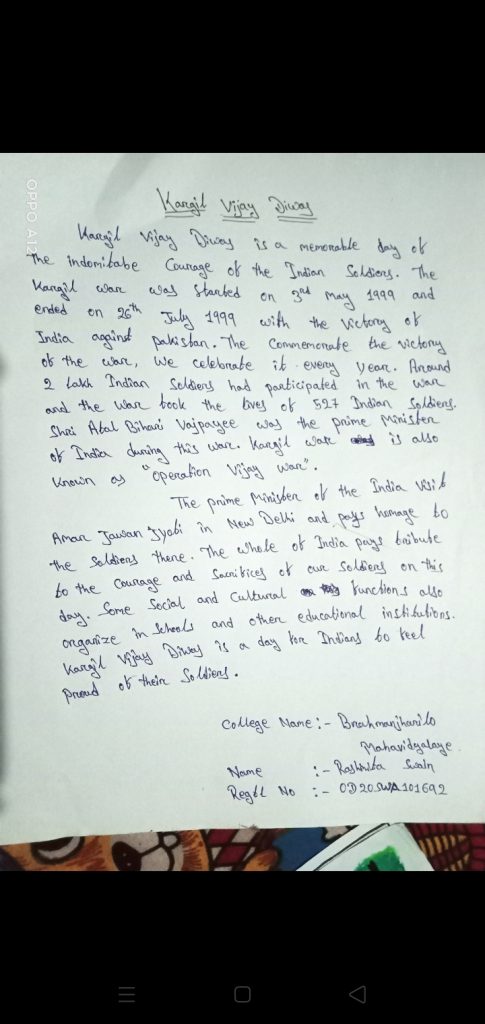 OPPO A12
Kargil Vijay Diwas
Kargil Vijay Diwas is a memorable day of
the indomitabe Courage of the Indian Soldiers. The
Kargil war was started on 3rd may 1999 and
ended on 26th July 1999 with the victory of
India against pakistan. The Commemorate the victory
of the war, we celebrate it every year. Around
2 Lakh Indian Soldiers had participated in the war
and the war took the lives of 527 Indian Soldiers.
Shri Atal Bihari Vajpayee was the prime Minister
of India during this war. Kargil war is also
known as "Operation Vijay war".
The prime Minister of the India visit
Amar Jawan Jyoti in New Delhi and pays homage to
the Soldiers there. The whole of India pays tribute
to the courage and Sacrifices of our Soldiers on this
day. Some Social and Cultural functions also
organize in Schools and other educational institutions.
Kargil Vijay Diwas is a day for Indians to feel
proud of their Soldiers.
College Name :- Brahmanjharilo
Mahavidyalaya
Name :- Swain
Regd No :- OD20SWA101692